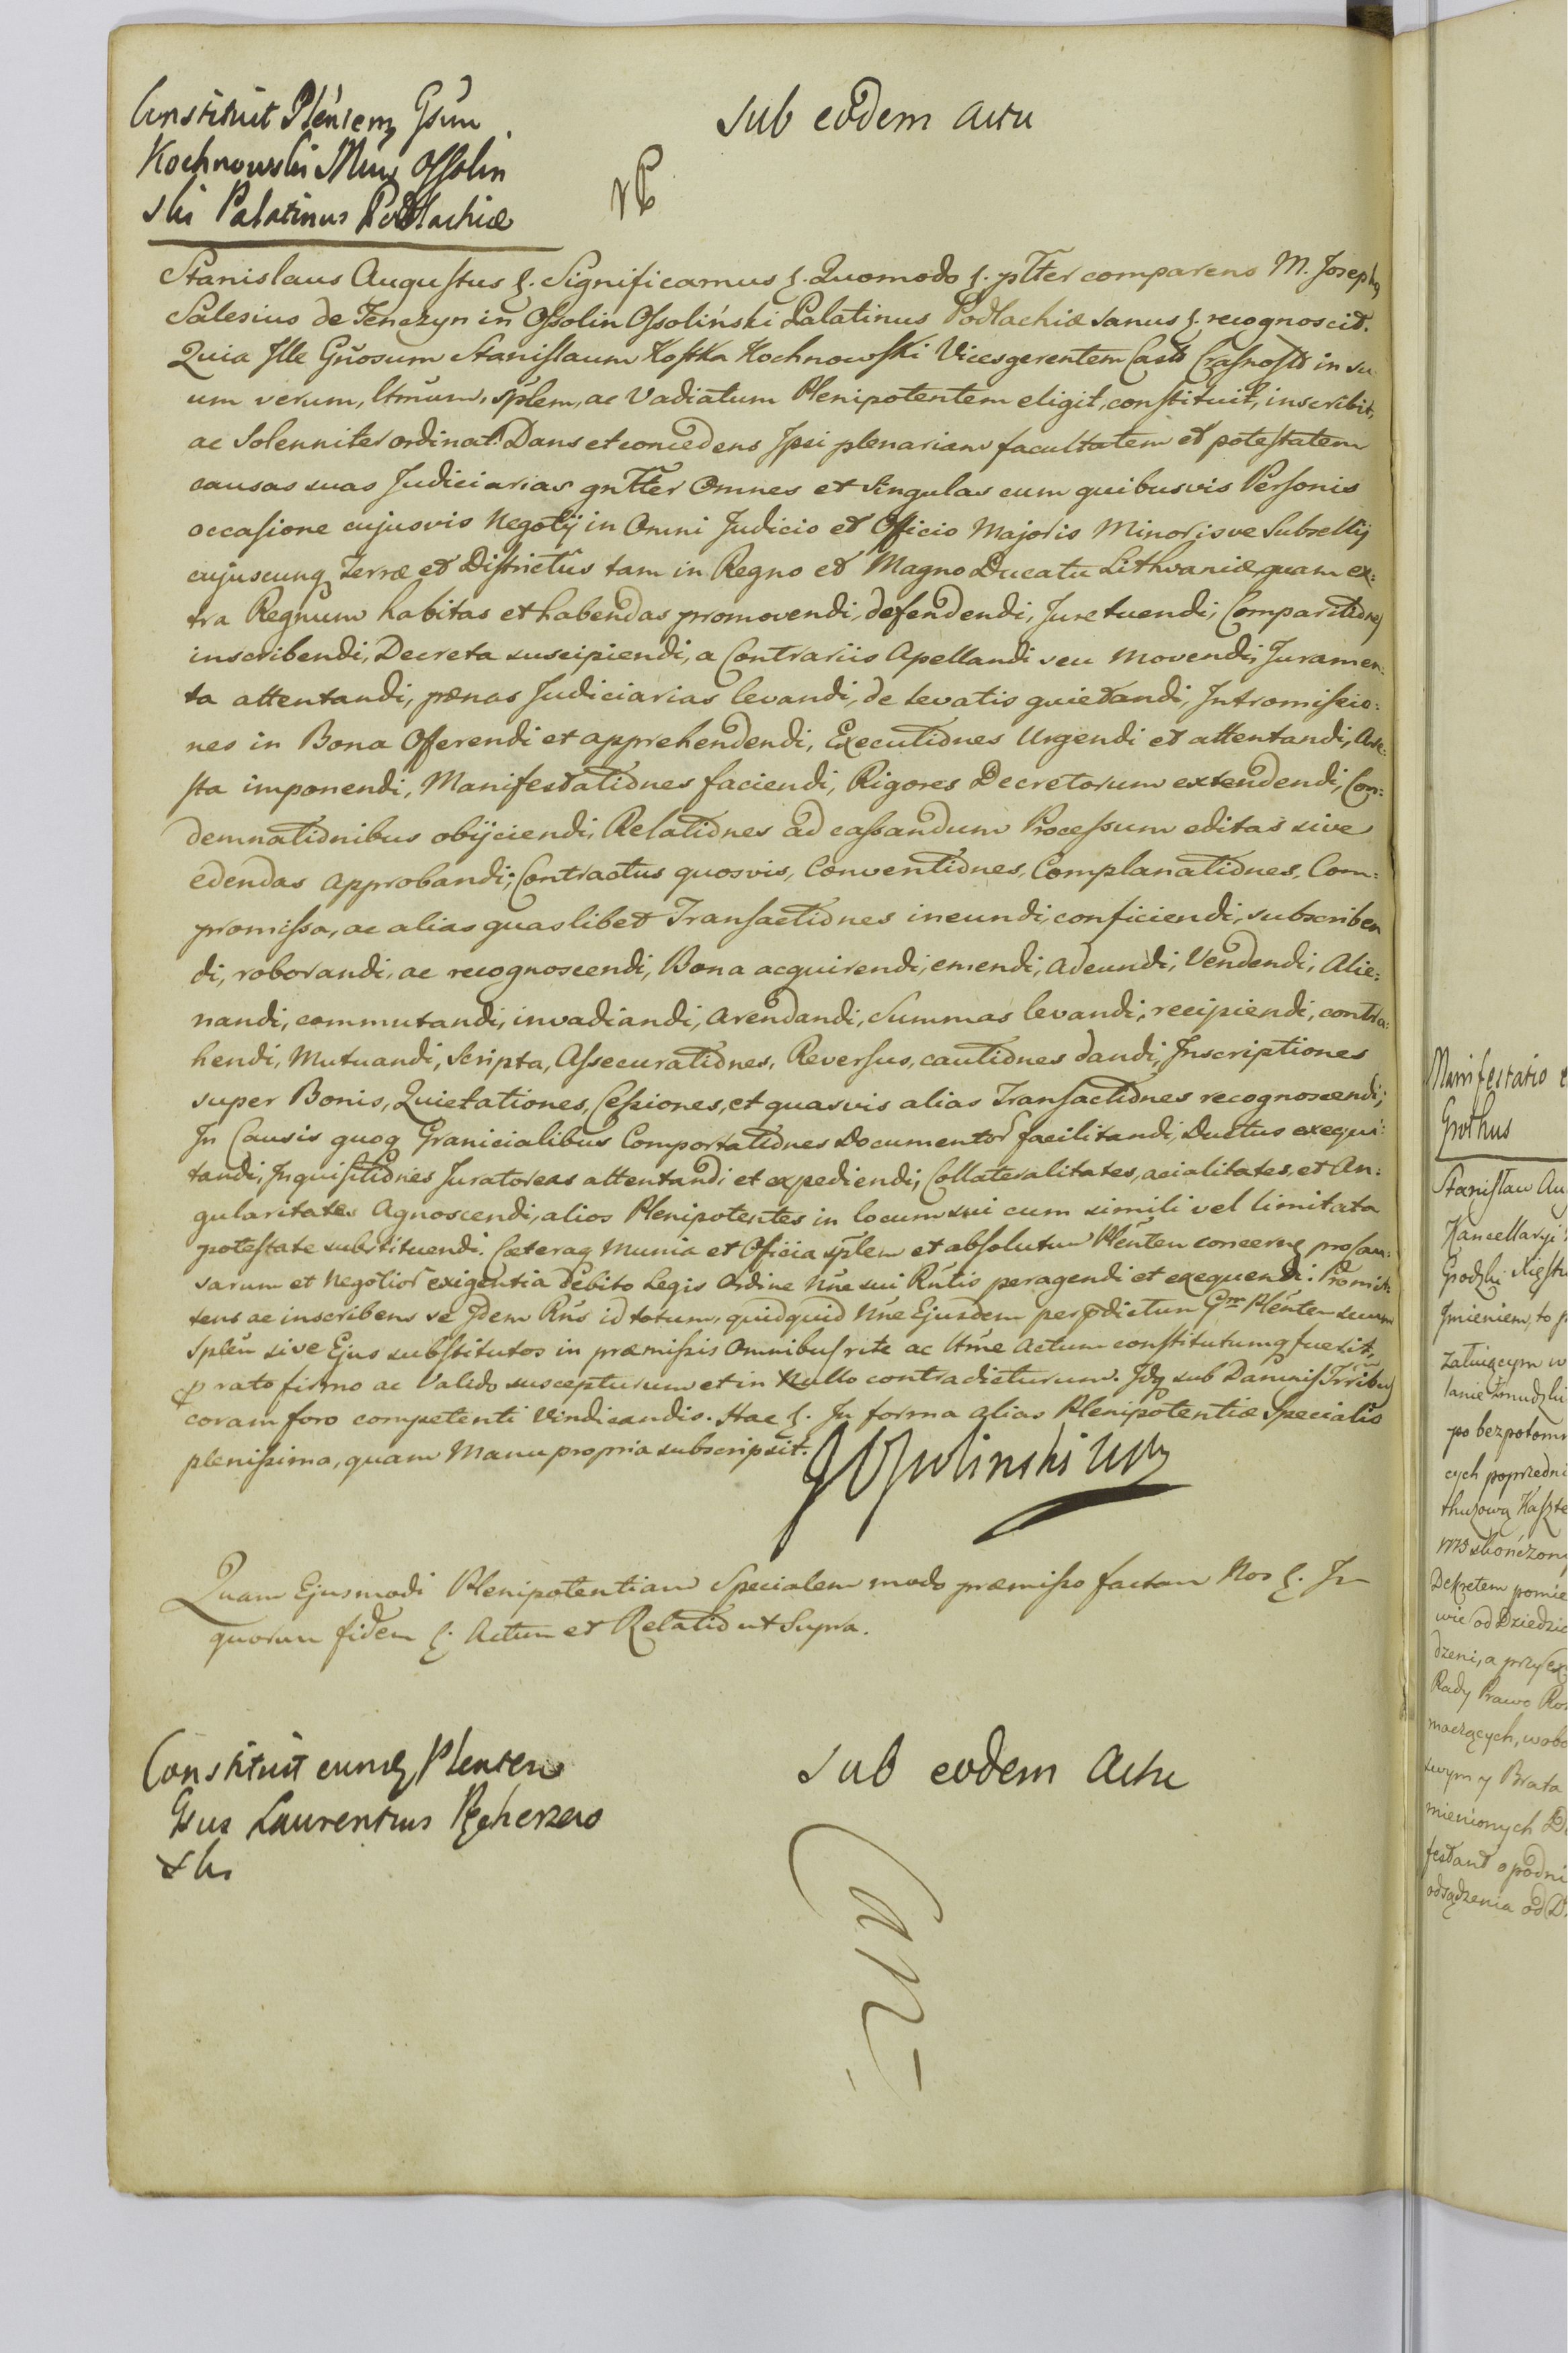 Constituit Pleńtem Gsum
Kochnowski Mńus Ossolin
ski Palatinus Podlachiæ
sub eodem actu
Stanislaus Augustus ξ. Significamus ξ. Quomodo ξ. pltter comparens M. Josephus
Salesius de Tenczyn in Ossolin Ossoliński Palatinus Podlachiæ sanus ξ. recognoscit.
Quia Ille Gńosum Stanislaum Kostka Kochnowski Vicesgerentem Castr Crasnostr in su
um verum, ltmum, splem, ac Vadiatum Plenipotentem eligit, constituit, inscribit,
ac Solenniter ordinat. Dans et concedens Ipsi plenariam facultatem et potestatem
causas suas Judiciarias gnltter Omnes et Singulas cum quibusvis Personis
occasione cujusvis Negotij in Omni Judicio et Officio Majoris Minorisve Subsellij
cujuscunq Terræ et Districtus tam in Regno et Magno Ducatu Lithvaniæ quam ex:
tra Regnum habitas et habendas promovendi, defendendi, Jure tuendi, Comparitiones
inscribendi, Decreta suscipiendi, a Contrariis Apellandi seu Movendi, Juramen:
ta attentandi, pænas Judiciarias levandi, de levatis quietandi, Intromissio:
nes in Bona Offerendi et apprehendendi, Executiones Urgendi et attentandi, Are:
sta imponendi, Manifestationes faciendi, Rigores Decretorum extendendi, Con:
demnationibus obijciendi, Relationes ad cassandum Processum editas sive
edendas approbandi; Contractus quosvis, Conventiones, Complanationes, Com:
promissa, ac alias quaslibet Transactiones ineundi, conficiendi, subscriben
di, roborandi, ac recognoscendi, Bona acquirendi, emendi, adeundi, Vendendi, Alie:
nandi, commutandi, invadiandi, arendandi, Summas levandi, recipiendi, contra:
hendi, Mutuandi, Scripta, Assecurationes, Reversus, cautiones dandi, Inscriptiones
super Bonis, Quietationes, Cessiones, et quasvis alias Transactiones recognoscendi;
In Causis quoq Granicialibus Comportationes Documentor facilitandi, Ductus exequi:
tandi, Inquisitiones Juratoreas attentandi et expediendi, Collateralitates, acialitates, et An:
gularitates Agnoscendi, alios Plenipotentes in locum sui cum simili vel limitata
potestate substituendi. Cæteraq Munia et Officia splem et absolutum Plenten concerne pro cau:
sarum et Negotior exigentia debito Legis Ordine Nńe sui Rńtis peragendi et exequendi. Promit:
tens ac inscribens se Idem Rńs id totum, quidquid Nńe Ejusdem per pdictum Gm Plenten suum
Splen sive Ejus substitutos in præmissis Omnibus rite ac ltme Actum constitutumq fuerit,
p rato firmo ac Valido suscepturum et in Nullo contradicturum. Idq sub Damnis Trribus
coram foro competenti Vindicandis. Hac ξ. In forma alias Plenipotentiæ Specialis
plenissima, quam Manu propria subscripsit. JOssolinski WPP
Quam Ejusmodi Plenipotentiam Specialem modo præmisso factam Nos ξ. In
quorum fidem ξ. Actum et Relatio ut Supra.
Constituit eundem Plenten
Gsus Laurentius
ski
sub eodem Actu
Manifestatio
Grothus
Stanislaw Au
Kancellaryi
Grodzki
Imieniem, to
po bezpotom
cych poprzedni
Dekretem pomie
wie od Dziedzic
dzeni, a przy
Rady Prawo
swym y Brata
mienionych
odsądzenia od D